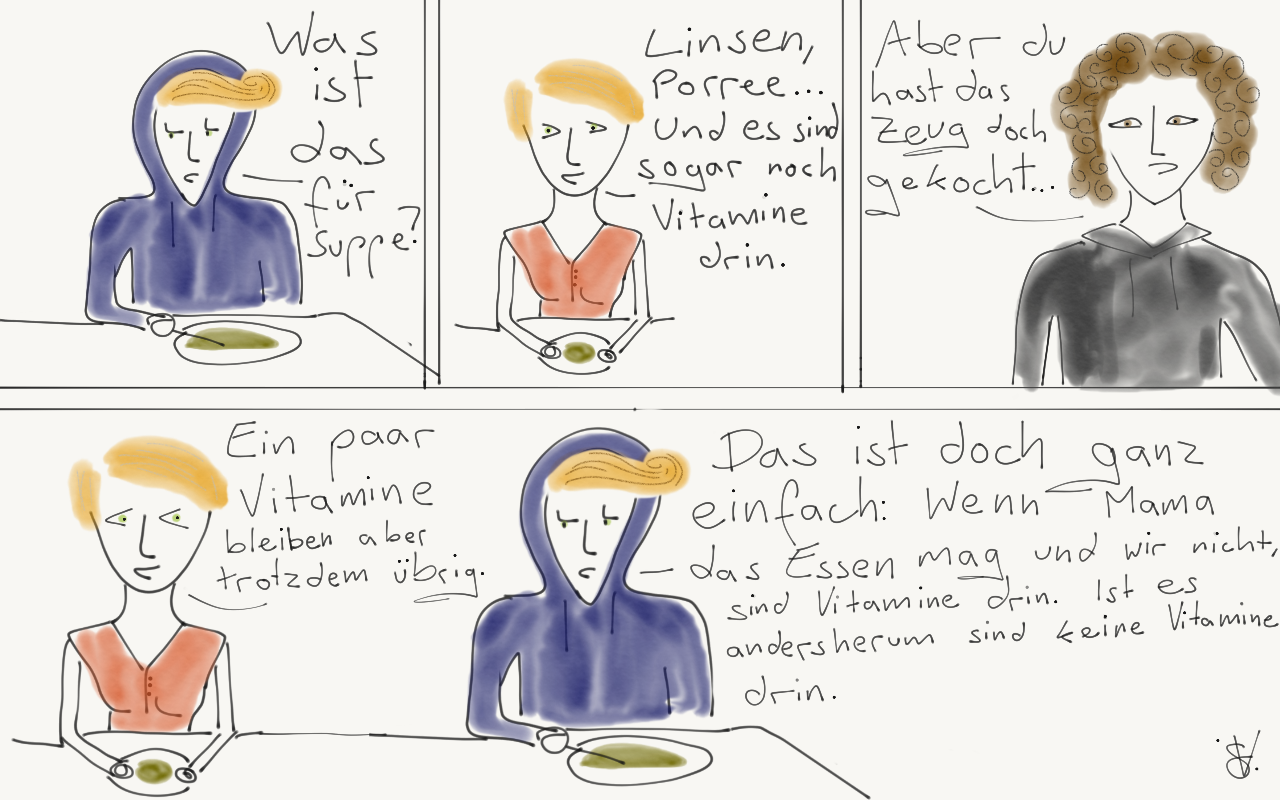 Was
ist
das
für
Suppe?
Linsen,
Porree...
Und es sind
sogar noch
Vitamine
drin.
Aber du
hast das
Zeug doch
gekocht...
Ein paar
Vitamine
bleiben aber
trotzdem übrig.
Das ist doch ganz
einfach: Wenn Mama
das Essen mag und wir nicht,
sind Vitamine drin. Ist es
andersherum sind keine Vitamine
drin.